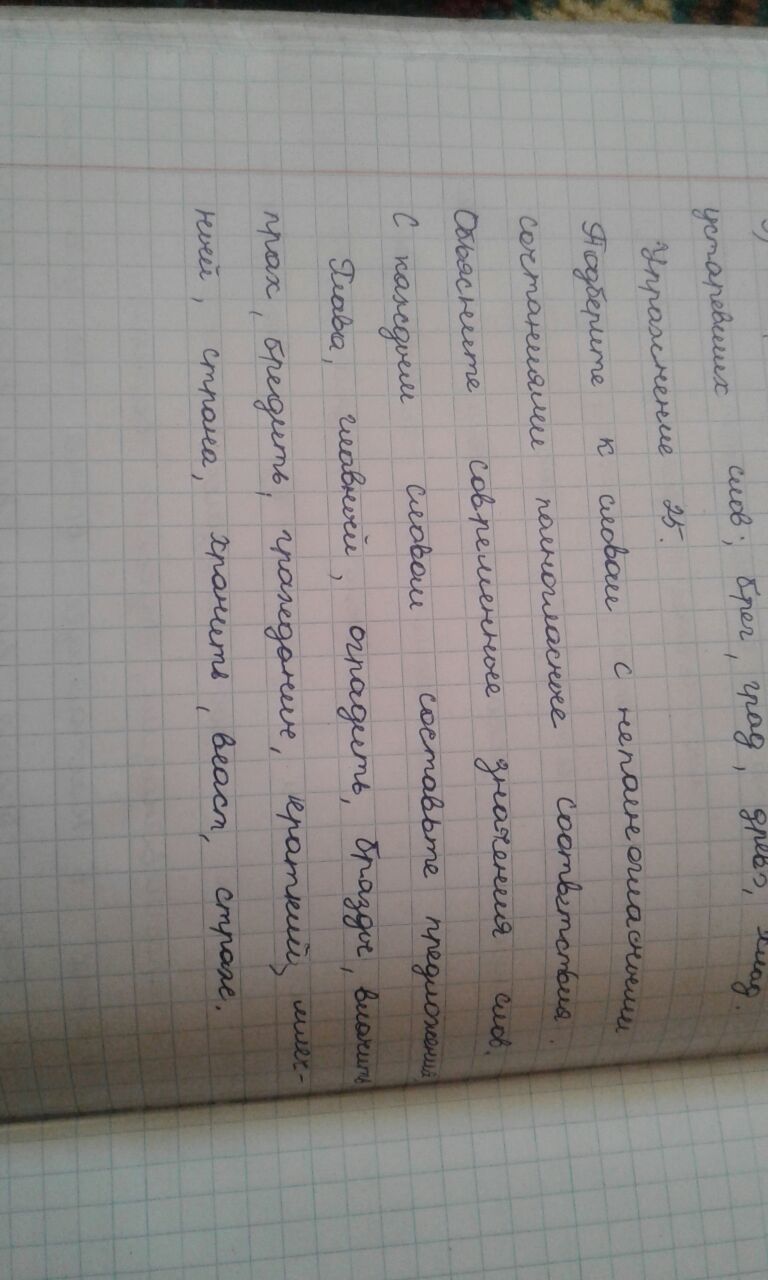 устаревших слов; брег, град, древо, хлад.
Упражнение 25.
Подберите к словам с неполногласными
сочтаниями полногласные соответствия.
Объясните современные значения слов.
С каждым словом составьте предложения
Глава, главный, оградить, бразды, влачить
прах, бредить, гражданин, краткий, млеч-
ный, страна, хранить, власть, страж.